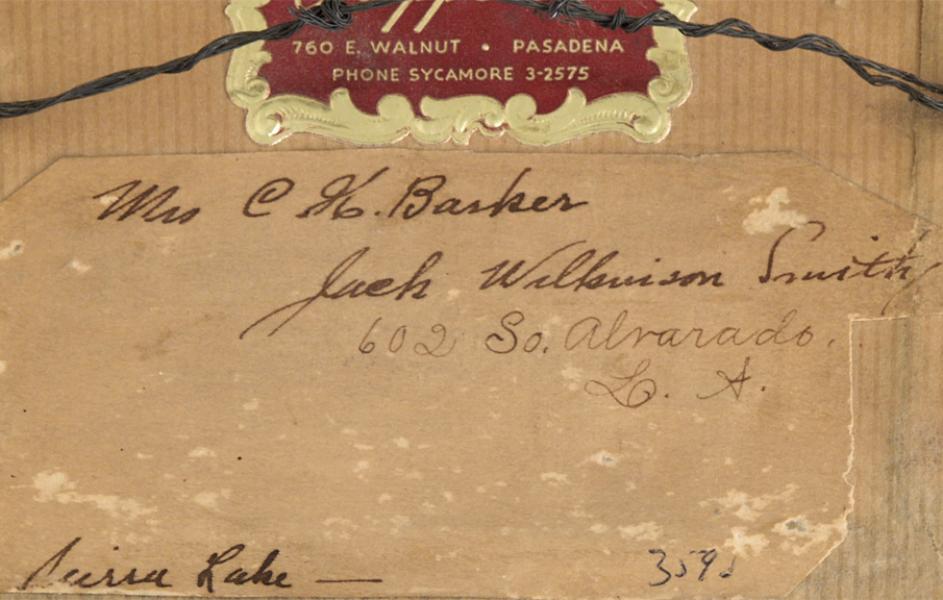 760 E. WALNUT • PASADENA
PHONE SYCAMORE 3-2575
Mrs C H. Barker
Jack Wilkinson Smith
602 So. Alvarado.
L. A.
Sierra Lake —